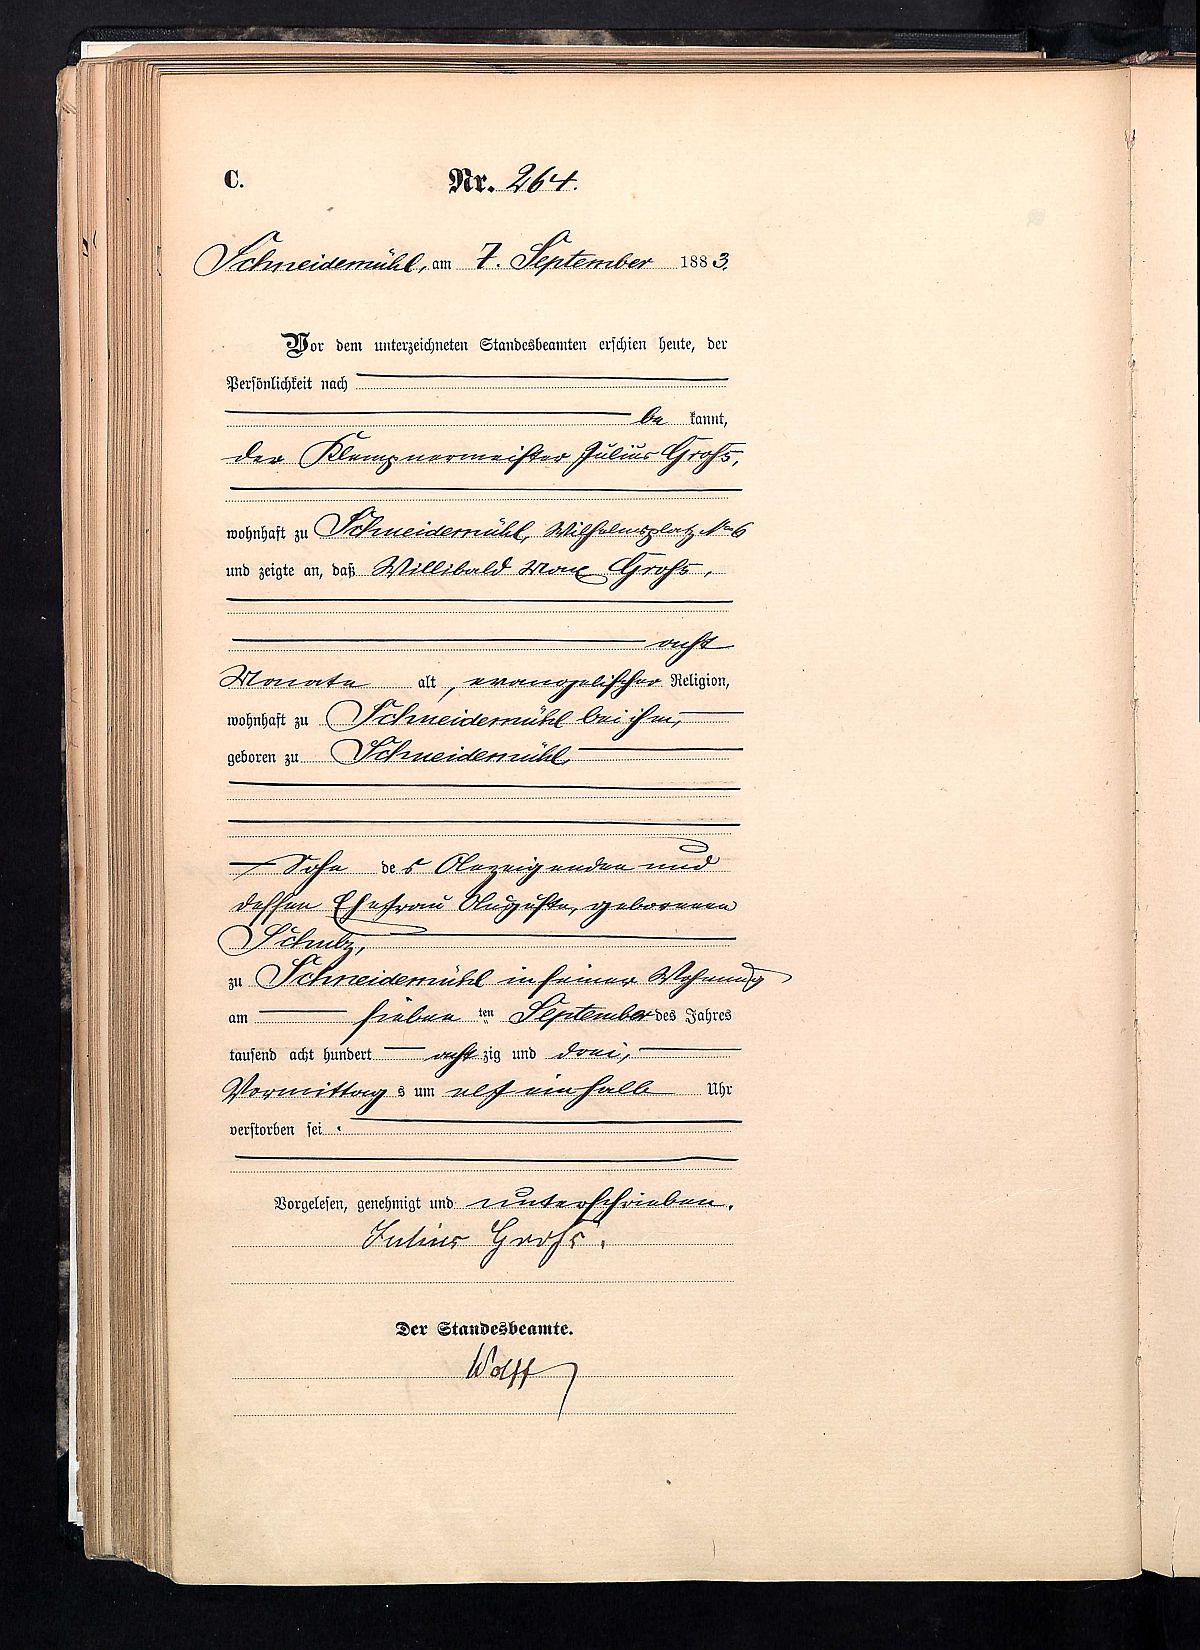 C. Nr. 264.
Schneidemühl, am 7. September 1883.
Vor dem unterzeichneten Standesbeamten erschien heute, der
Persönlichkeit nach
be kannt,
der Klempnermeister Julius Grohs,
wohnhaft zu Schneidemühl, Wilhelmsplatz No 6
und zeigte an, daß Willibald Max Grohs,
acht
Monate alt, evangelischer Religion,
wohnhaft zu Schneidemühl bei ihm,
geboren zu Schneidemühl,
Sohn des Anzeigenden und
dessen Ehefrau Auguste, geborenen
Schulz,
zu Schneidemühl in seiner Wohnung
am sieben ten September des Jahres
tausend acht hundert achtzig und drei,
Vormittags um elf ein halb Uhr
verstorben sei.
Vorgelesen, genehmigt und unterschrieben.
Julius Grohs.
Der Standesbeamte.
Wolff